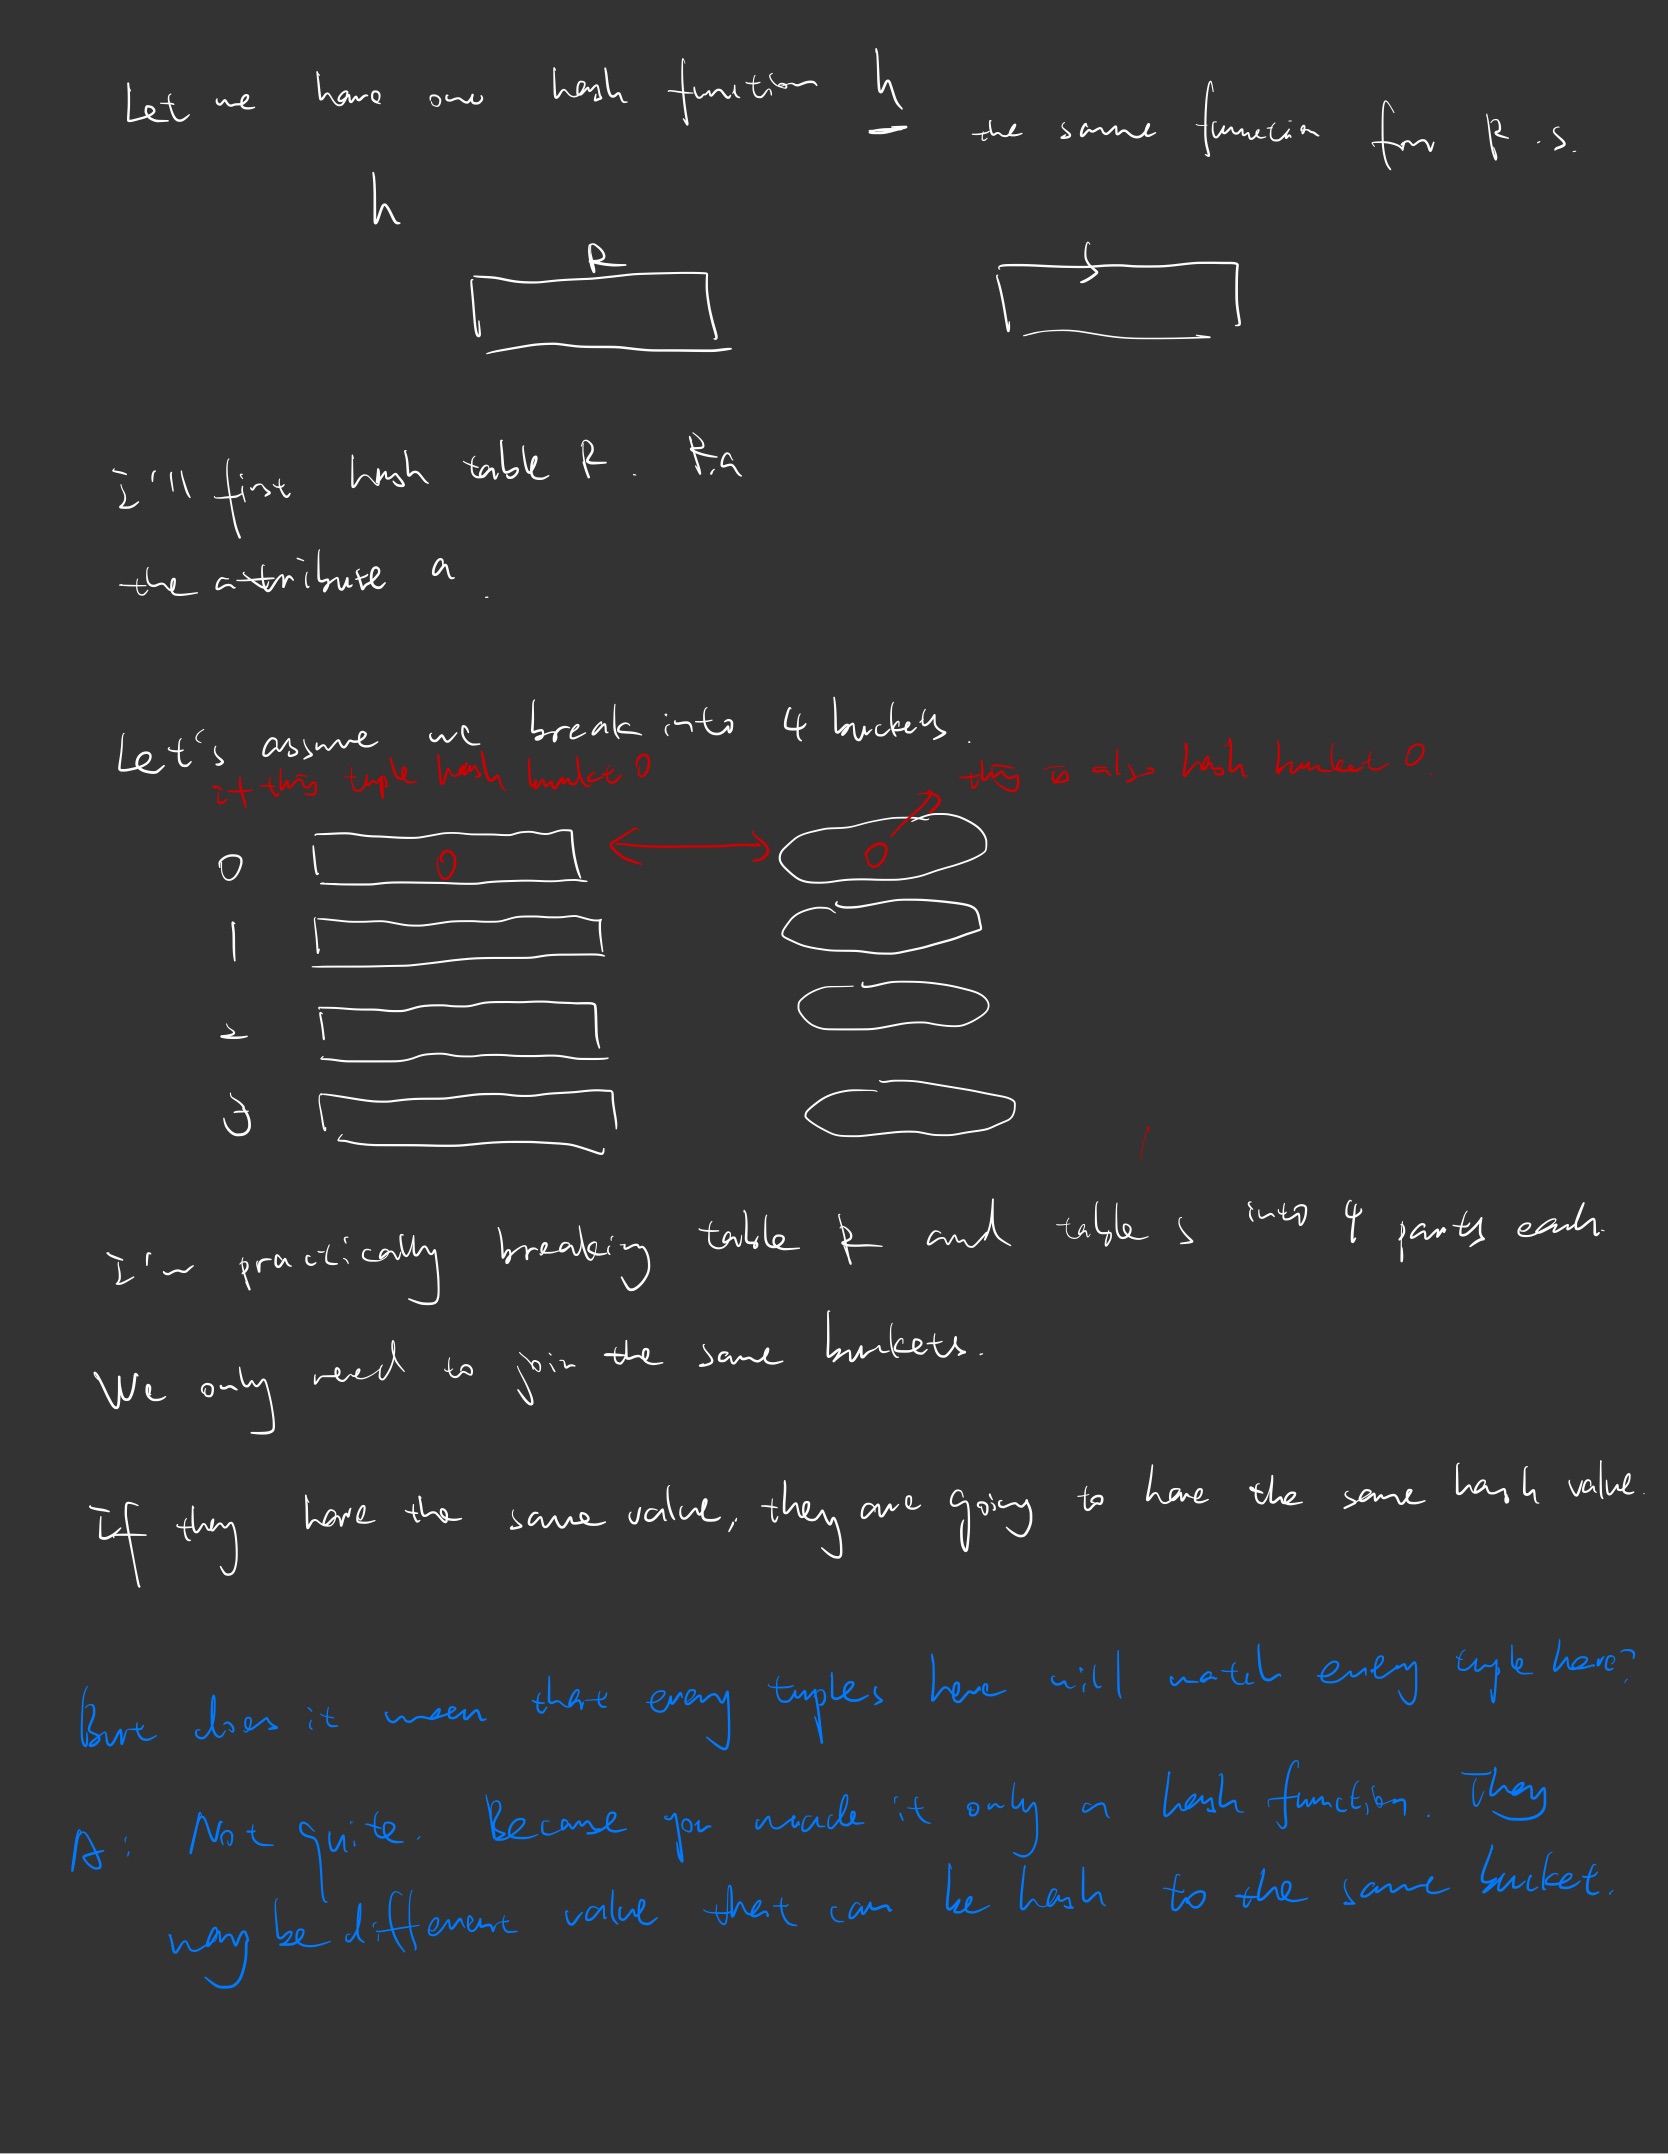 Let we have one hash function h the same function for R.S.
h
R S
I'll first hash table R. R.a
the attribute a.
Let's assume we break into 4 buckets.
if this tuple hash bucket 0 this is also hash bucket 0.
0 0 0
1
2
3
I'm practically breaking table R and table S into 4 parts each.
We only need to join the same buckets.
If they have the same value, they are going to have the same hash value.
But does it mean that every tuples here will match every tuple here?
A: Not quite. Because you made it only a hash function. They
may be different value that can be hash to the same bucket.